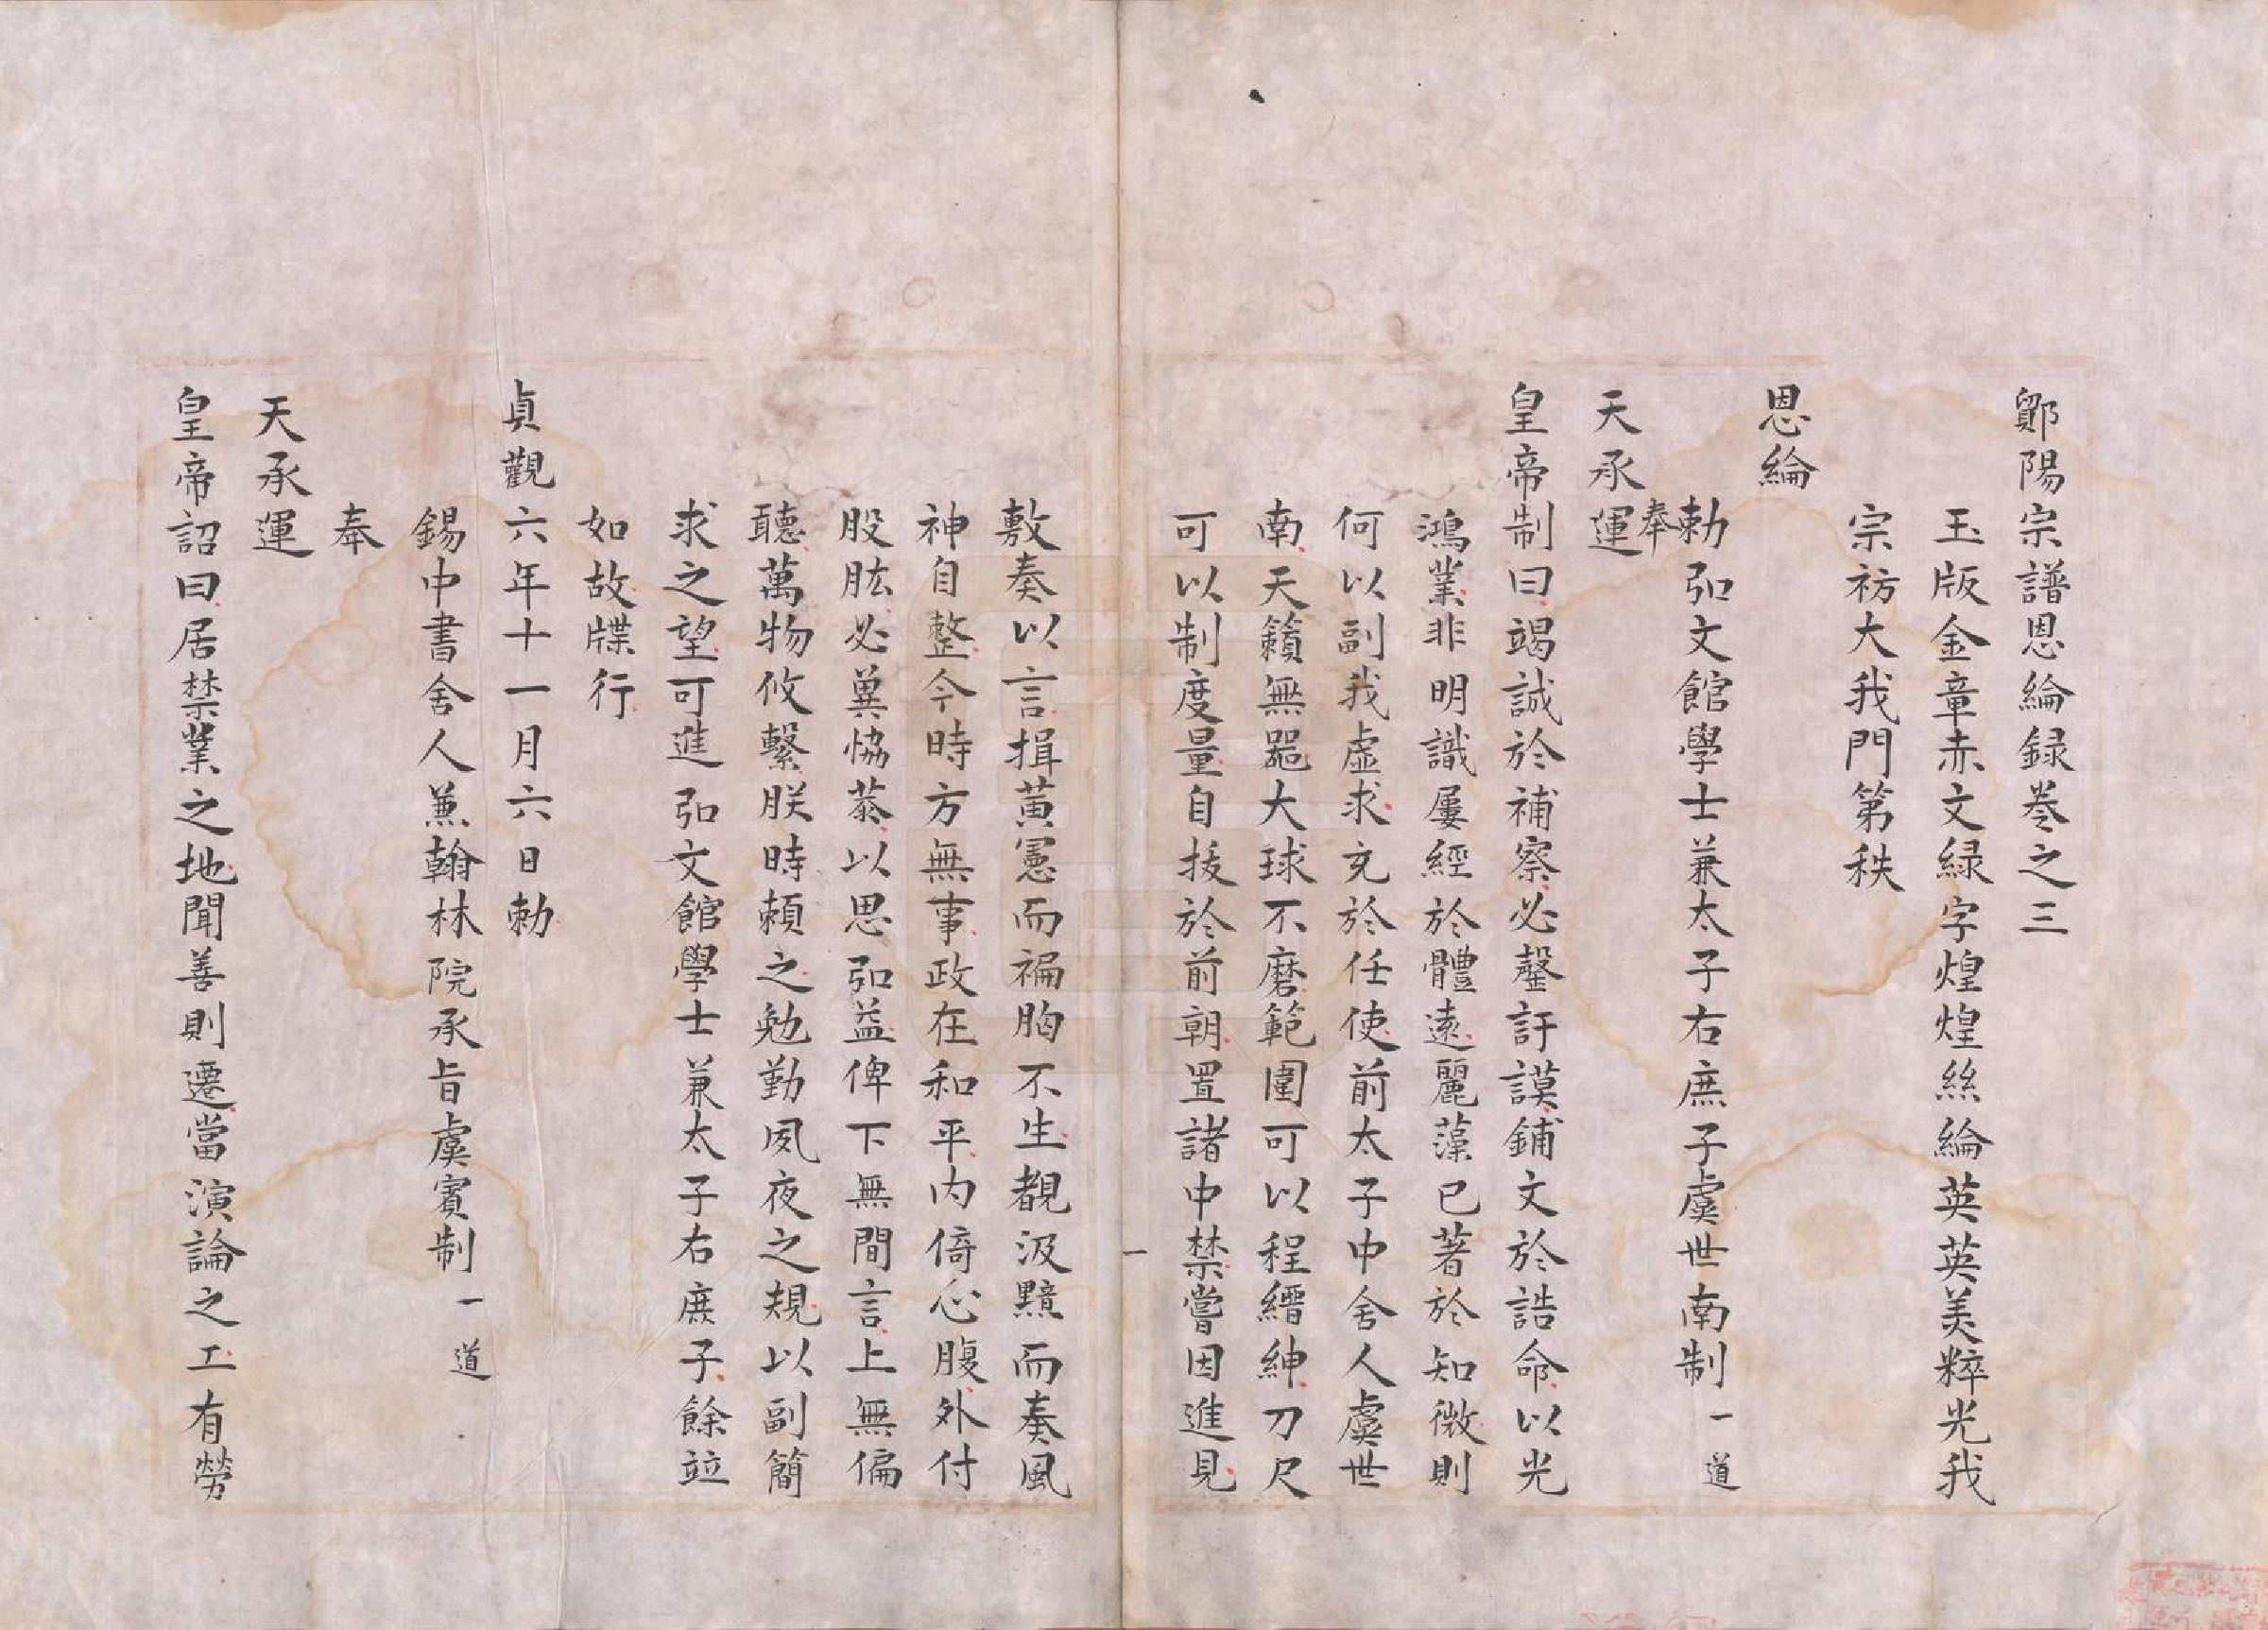 鄮陽宗譜恩綸録卷之三
玉版金章赤文緑字煌煌絲綸英英美粹光我
宗祊大我門第秩
恩綸
勅弘文館學士兼太子右庶子虞世南制一道
奉
天承運
皇帝制曰竭誠於補察必罄訏謨鋪文於誥命以光
鴻業非明識屢經於體遠麗藻已著於知微則
何以副我虛求充於任使前太子中舍人虞世
南天籟無噐大球不磨範圍可以程縉紳刀尺
可以制度量自拔於前朝置諸中禁嘗因進見
一
敷奏以言揖黄憲而褊胸不生覩汲黯而奏風
神自整今時方無事政在和平内倚心腹外付
股肱必兾恊恭以思弘益俾下無間言上無偏
聽萬物攸繫朕時頼之勉勤夙夜之規以副簡
求之望可進弘文館學士兼太子右庶子餘竝
如故牒行
貞觀六年十一月六日勅
錫中書舍人兼翰林院承旨虞賓制一道
奉
天承運
皇帝詔曰居禁業之地聞善則遷當演論之工有勞